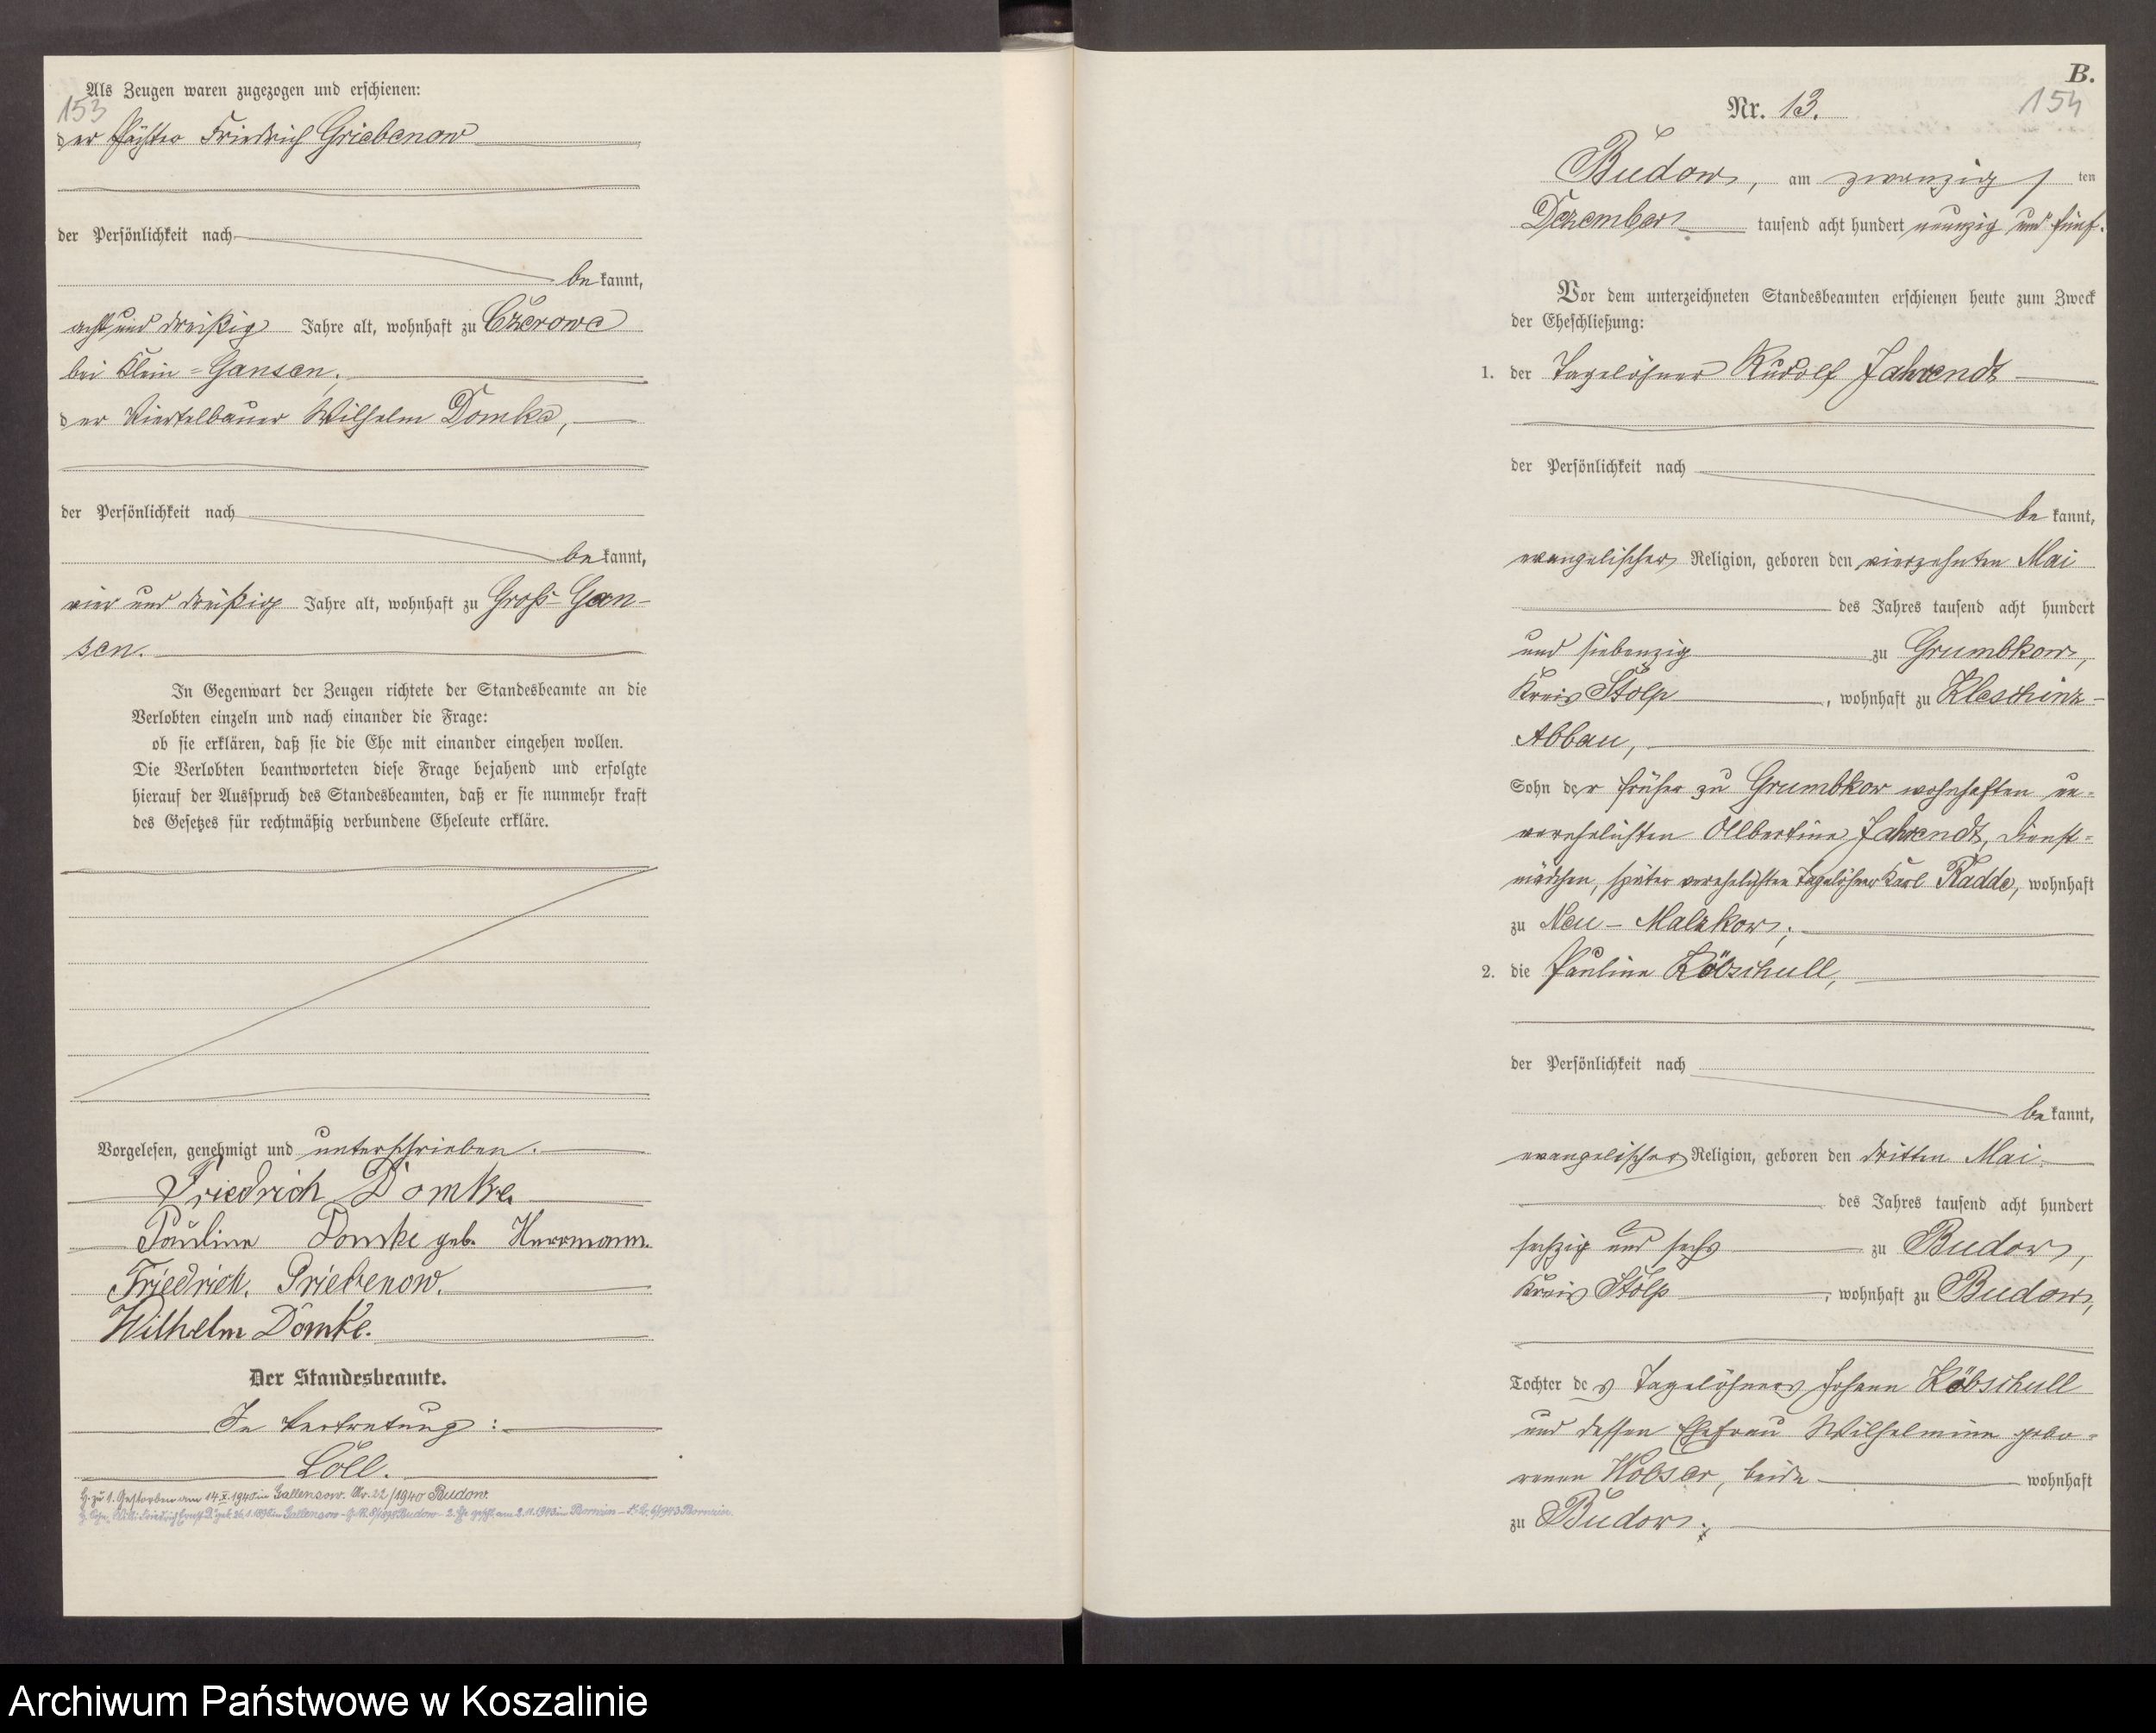 153
Als Zeugen waren zugezogen und erschienen:
der Pächter Friedrich Griebenow
der Persönlichkeit nach
be kannt,
acht und dreißig Jahre alt, wohnhaft zu Czerowe
bei Klein-Gansen.
der Viertelbauer Wilhelm Domke,
der Persönlichkeit nach
be kannt,
vier und dreißig Jahre alt, wohnhaft zu Groß-Gan-
sen.
In Gegenwart der Zeugen richtete der Standesbeamte an die
Verlobten einzeln und nach einander die Frage:
ob sie erklären, daß sie die Ehe mit einander eingehen wollen.
Die Verlobten beantworteten diese Frage bejahend und erfolgte
hierauf der Ausspruch des Standesbeamten, daß er sie nunmehr kraft
des Gesetzes für rechtmäßig verbundene Eheleute erkläre.
Vorgelesen, genehmigt und unterschrieben.
Friedrich Domke
Pauline Domke geb. Herrmann.
Friedrich. Griebenow.
Wilhelm Domke.
Der Standesbeamte.
In Vertretung:
Löll.
H. zu 1. Gestorben am 14.X.1940 in Gallensow. Nr. 22/1940 Budow.
geb. 26.1.1898 in Gallensow - Budow - 2. Ehe geschl. am 2.11.1943 in
B.
154
Nr. 13.
Budow, am zwanzig ten
Dezember tausend acht hundert neunzig und fünf.
Vor dem unterzeichneten Standesbeamten erschienen heute zum Zweck
der Eheschließung:
1. der Tagelöhner Rudolf Jahrendt
der Persönlichkeit nach
be kannt,
evangelischer Religion, geboren den vierzehnten Mai
des Jahres tausend acht hundert
und siebenzig zu Grumbkow,
Kreis Stolp, wohnhaft zu Kleschinz-
Abbau,
Sohn der früher zu Grumbkow wohnhaften un-
verehelichten Albertine Jahrendt, Dienst-
mädchen, später verehelichten Tagelöhner Karl Radde, wohnhaft
zu Neu-Malzkow;
2. die Pauline Köbschull,
der Persönlichkeit nach
be kannt,
evangelischer Religion, geboren den dritten Mai
des Jahres tausend acht hundert
sechzig und sechs zu Budow,
Kreis Stolp, wohnhaft zu Budow,
Tochter des Tagelöhners Johann Köbschull
und dessen Ehefrau Wilhelmine gebo-
renen Wobser, beide wohnhaft
zu Budow.
Archiwum Państwowe w Koszalinie